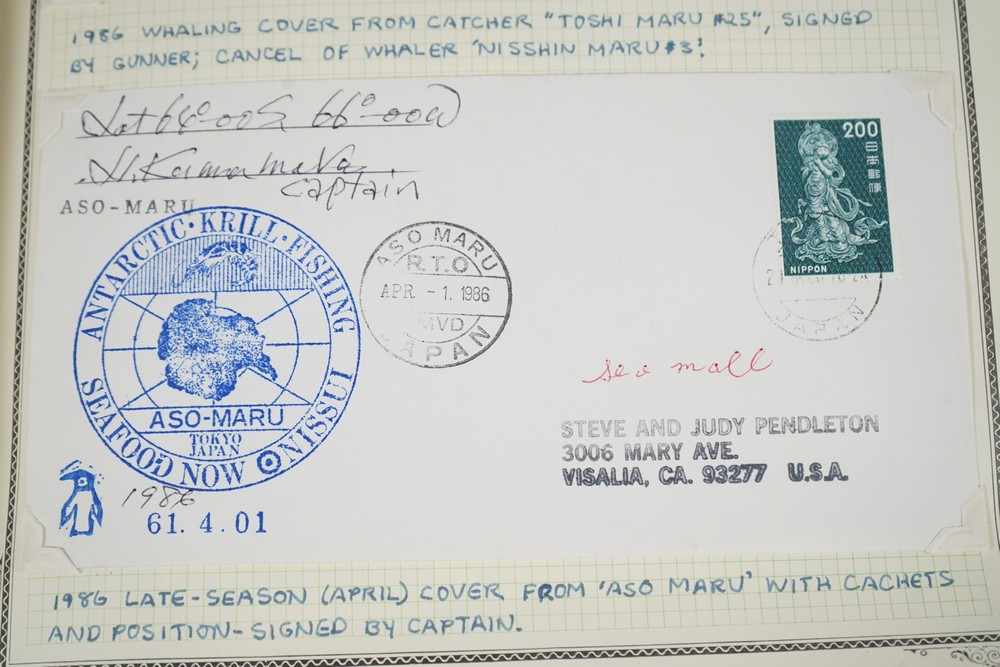 1986 WHALING COVER FROM CATCHER "TOSHI MARU #25", SIGNED
BY GUNNER; CANCEL OF WHALER 'NISSHIN MARU #3'.
Lat 64°-00S 66°-00W
Captain
ASO-MARU
ANTARCTIC·KRILL·FISHING
SEAFOOD NOW NISSUI
ASO-MARU
TOKYO
JAPAN
1986
61. 4. 01
ASO MARU
R.T.O
APR. -1. 1986
MVD
JAPAN
200
日本郵便
NIPPON
JAPAN
sea mall
STEVE AND JUDY PENDLETON
3006 MARY AVE.
VISALIA, CA. 93277 U.S.A.
1986 LATE-SEASON (APRIL) COVER FROM 'ASO MARU' WITH CACHETS
AND POSITION-SIGNED BY CAPTAIN.